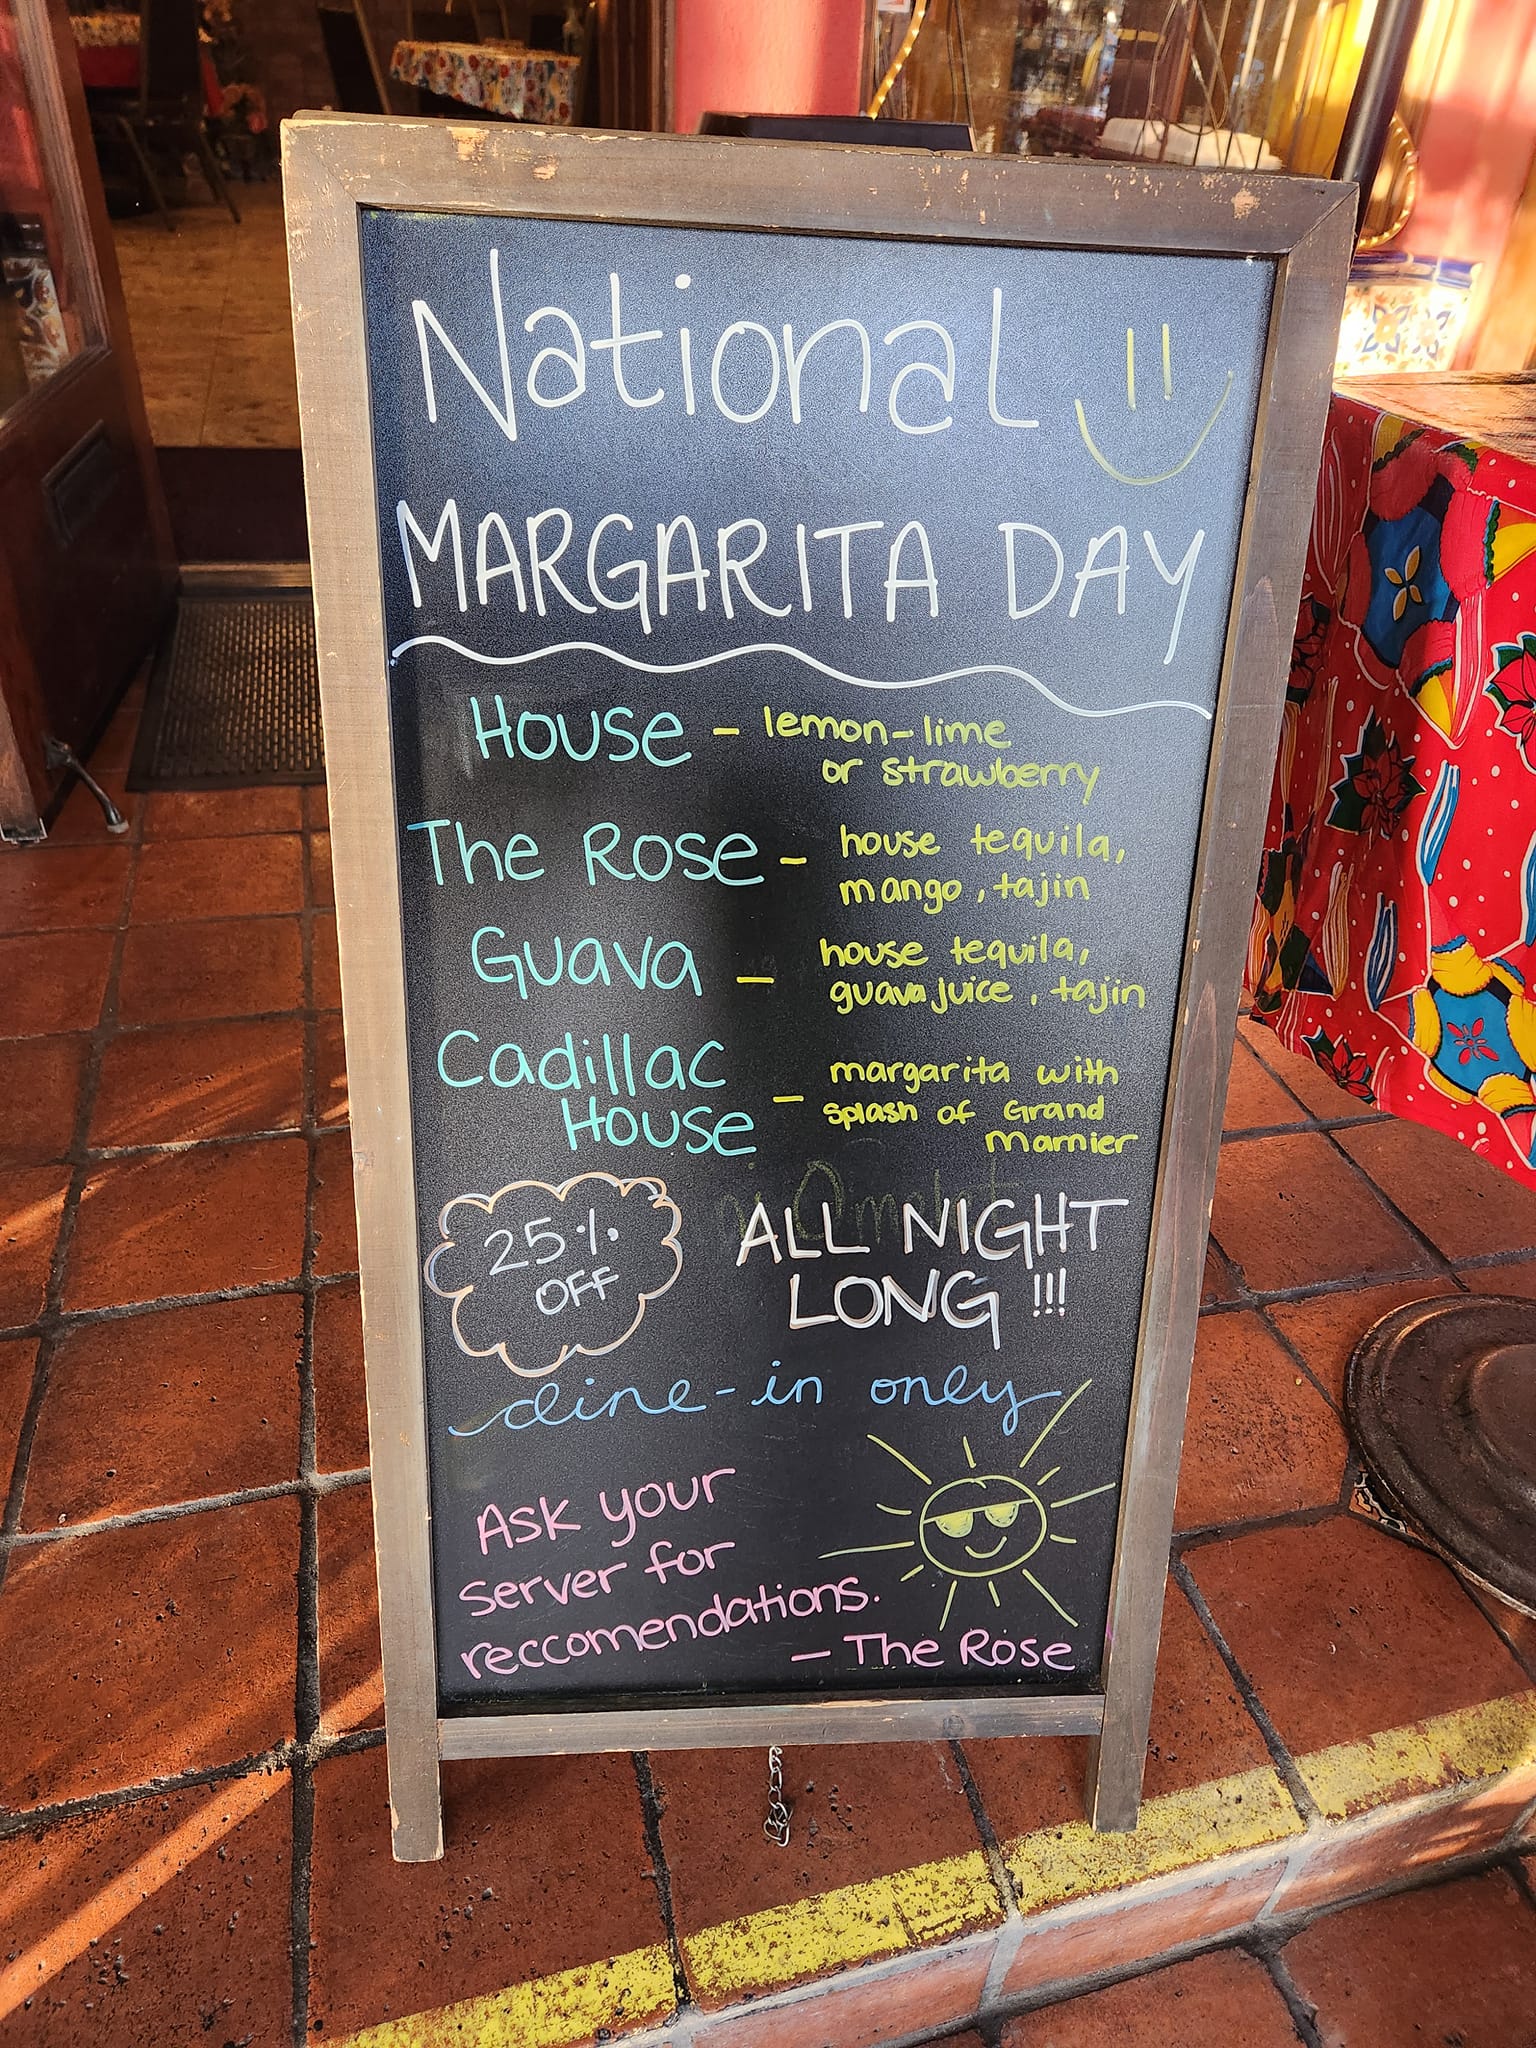 National
MARGARITA DAY
House - lemon-lime
or strawberry
The Rose - house tequila,
mango, tajin
Guava - house tequila,
guava juice, tajin
Cadillac
House - margarita with
splash of Grand
Marnier
25% OFF
ALL NIGHT
LONG !!!
dine-in only
Ask your
server for
reccomendations.
- The Rose